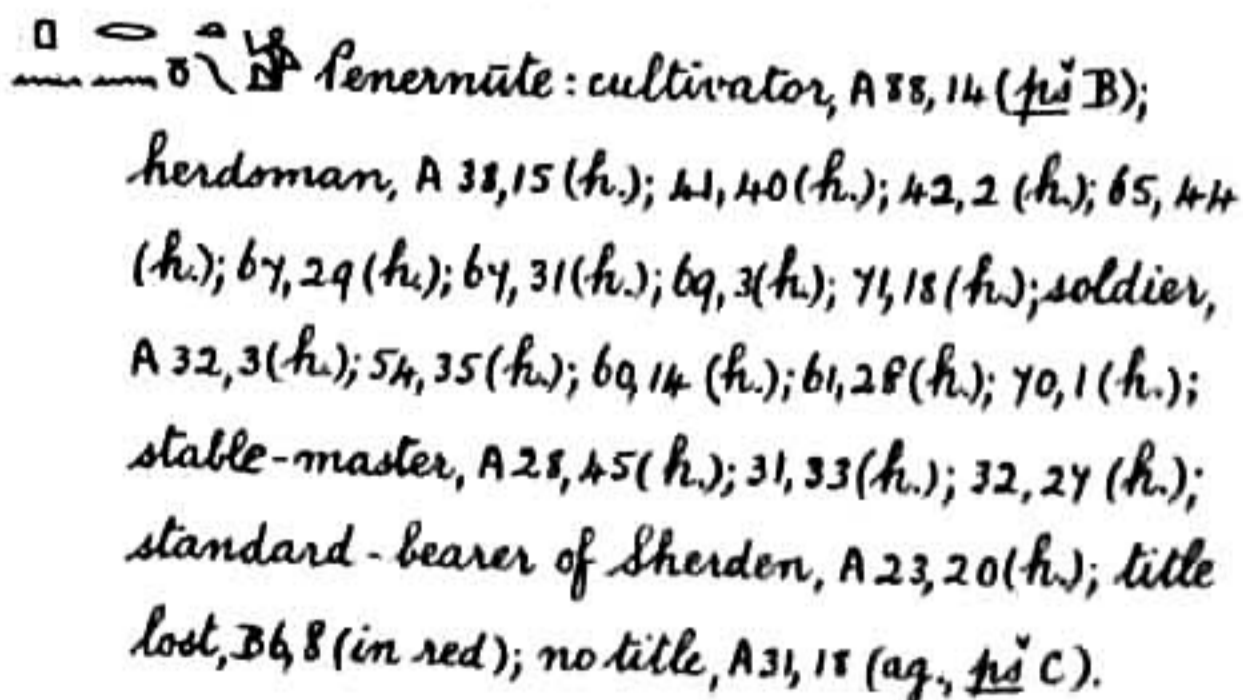 Penernūte: cultivator, A 88, 14 (pš B);
herdsman, A 38, 15 (h.); 41, 40 (h.); 42, 2 (h.); 65, 44
(h.); 67, 29 (h.); 67, 31 (h.); 69, 3 (h.); 71, 18 (h.); soldier,
A 32, 3 (h.); 54, 35 (h.); 60, 14 (h.); 61, 28 (h.); 70, 1 (h.);
stable-master, A 28, 45 (h.); 31, 33 (h.); 32, 27 (h.);
standard-bearer of Sherden, A 23, 20 (h.); title
lost, B6, 8 (in red); no title, A 31, 18 (ag., pš C).